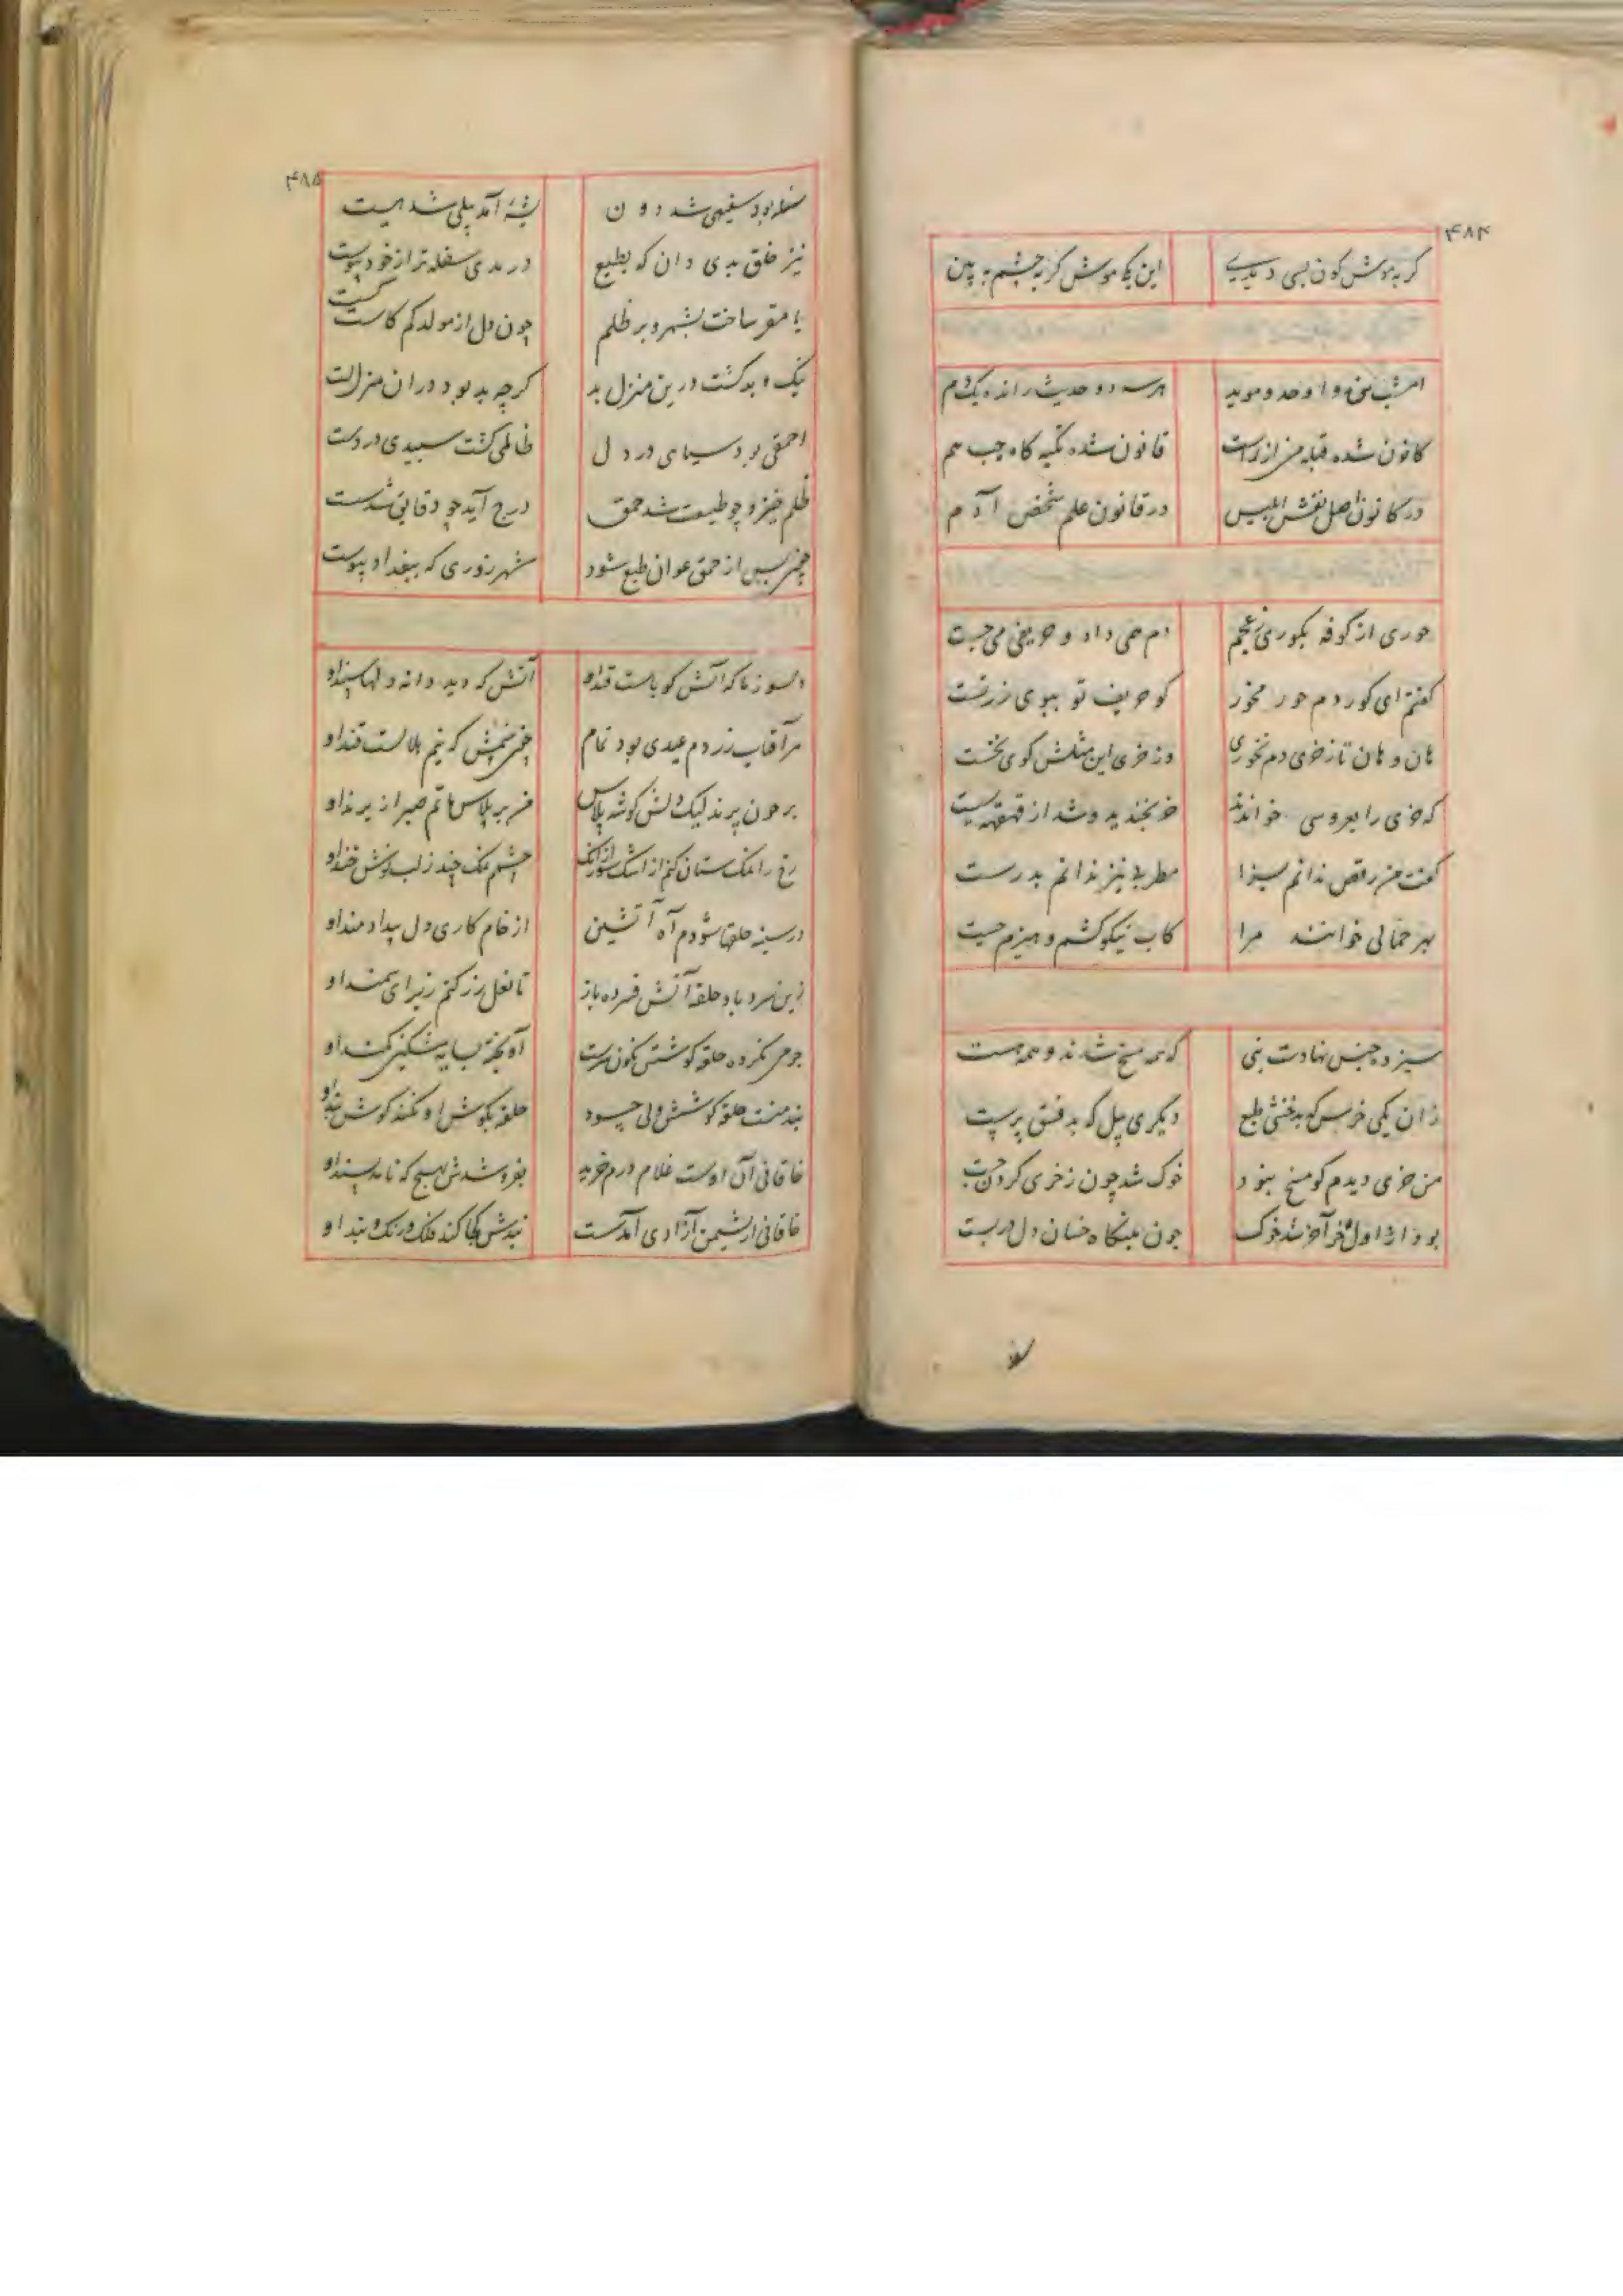 ۴۸۴
گربه موش کون بسی دیدے این یک موش گربه چشم به بین
امشب من و اوحد و موید هر سه دو حدیث رانده یک دم
کانون شده قبله من از راست قانون شده تکیه کاه چپ هم
در کانون اصل نفس ابلیس در قانون علم شخص آدم
حوری از کوفه بکوری ز عجم دم همی داد و حریفی می جست
کفتم ای کور دم حور مخور کو حریف تو ببوی زر تست
هان و هان تا ز خری دم نخوری ور خری این مثلش کوی نخست
که خری را بعروسی خواندند خر بخندید و شد از قهقهه سست
کفت من رقص ندانم بسزا مطربی نیز ندانم بدرست
بهر حمالی خوانند مرا کاب نیکو کشم و هیزم چست
سیزده جنس نهادست نبی که همه مسخ شدند و همه هست
زان یکی خرس که بد خنثی طبع دیکری پیل که بد فسق پرست
من خری دیدم کو مسخ نبود خوک شد چون ز خری کردن جست
بود ز اول خر آخر شد خوک چون بنکاه خسان دل دربست
۴۸۵
سفله بود سفیهی شد دون پشهٔ آمد پیلی شد مست
نیز خلق بدی دان که بطبع در بدی سفله تر از خود پیوست
تا مقر ساخت بشهر و بر ظلم چون دل از مولد کم کاست کسست
نیک و بد کشت درین منزل بد کرچه بد بود در آن منزل
احمقی بود سیاهی در دل ظالمی کشت سپیدی در دست
ظلم خیزد چو طبیعت شد حمق درج آید چو دقایق شد شست
از حمق عوان طبع شود شهرزوری که ببغداد پیوست
دلسوز ما که آتش کویاست قند او آتش که دید دانه دلها سپند او
هر آفتاب زردم عیدی بود تمام که نیم هلالست قند او
بر خون پرند لیک دلش کوشه پلاس من بر پلاس ماتم صبر از پرند او
رخ را نمکستان کنم از اشک شور از آنک چشمم نمک چند ز لب نوش خند او
در سینه حلقها شودم آه آتشین از خام کاری دل بیدادمند او
زین سرد باد حلقه آتش فسرده باز تا نعل زر کنم ز برای سمند او
جرمی نکرده حلقه کوشش نکونسرست آویخته بسایه مشکین کمند او
بند منست حلقه کوشش ولی چسود حلقه بکوش او نکند کوش بند او
خاقانی آن اوست غلام درم خرید بفروشدش بهیچ که ناید پسند او
خاقانی از نشیمن آزادی آمدست بندش کجا کند فلک و رنک و بند او